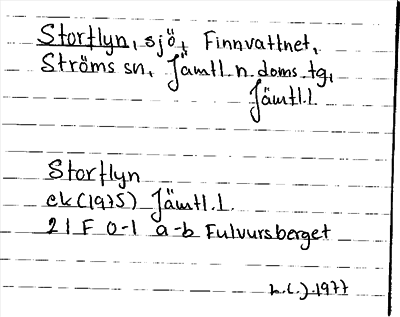 Stortlyn, sjö, Finnvattnet,
Ströms sn, Jämtl. n. doms. tg,
Jämtl.l.
Stortlyn
ek (1975) Jämtl. l.
21 F 0-1 a-b Fulvursberget
1977